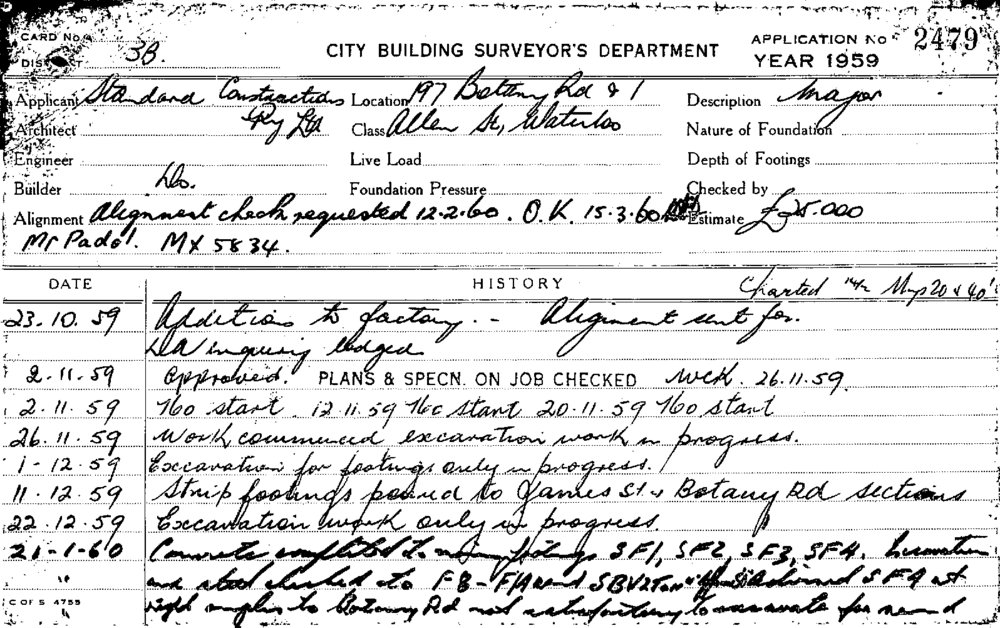 CARD No
DISTRICT 3B.
CITY BUILDING SURVEYOR'S DEPARTMENT
APPLICATION No 2479
YEAR 1959
Applicant Standard Constructions Pty Ltd
Location 197 Botany Rd & 1
Description Major
Architect
Class Allen St, Waterloo
Nature of Foundation
Engineer
Live Load
Depth of Footings
Builder Do.
Foundation Pressure
Checked by
Alignment Alignment check requested 12.2.60. O.K. 15.3.60
Estimate £25.000
Mr Padol. MX 5834.
DATE HISTORY Charted Maps 20 & 40'
23.10.59 Additions to factory. - Alignment sent for.
DA inquiry lodged
2.11.59 Approved. PLANS & SPECN. ON JOB CHECKED 26.11.59.
2.11.59 No start. 12.11.59 No start 20.11.59 No start
26.11.59 Work commenced excavation work in progress.
1-12.59 Excavation for footings only in progress.
11.12.59 Strip footings poured to James St & Botany Rd sections
22.12.59 Excavation work only in progress.
21-1-60 Concrete completed to footings SF1, SF2, SF3, SF4. Excavation
" and steel checked to F8 - F1A and SF4 at
C OF S 4755 " right angles to Botany Rd not satisfactory to excavate for